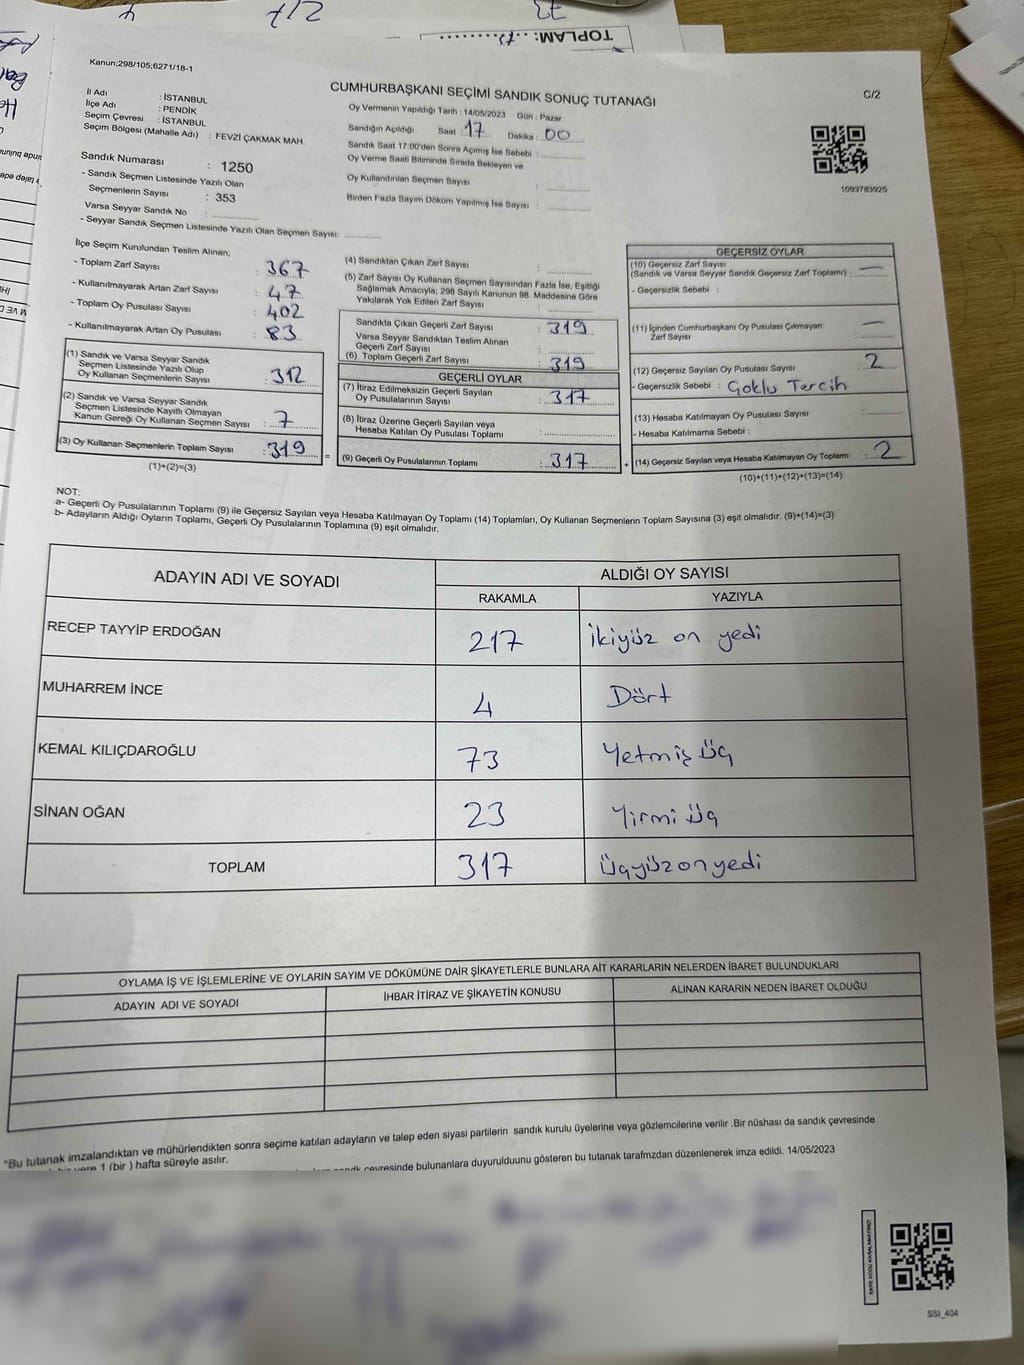 217
4
73
TOPLAM: 73
Kanun;298/105;6271/18-1
CUMHURBAŞKANI SEÇİMİ SANDIK SONUÇ TUTANAĞI
C/2
İl Adı : İSTANBUL
İlçe Adı : PENDİK
Seçim Çevresi : İSTANBUL
Seçim Bölgesi (Mahalle Adı) : FEVZİ ÇAKMAK MAH.
Oy Vermenin Yapıldığı Tarih : 14/05/2023 Gün : Pazar
Sandığın Açıldığı Saat 17 Dakika : 00
Sandık Saat 17:00'den Sonra Açımış İse Sebebi :
Oy Verme Saati Bitiminde Sırada Bekleyen ve
Oy Kullandırılan Seçmen Sayısı :
Birden Fazla Sayım Döküm Yapılmış İse Sayısı :
1093783925
Sandık Numarası : 1250
- Sandık Seçmen Listesinde Yazılı Olan
Seçmenlerin Sayısı : 353
Varsa Seyyar Sandık No :
- Seyyar Sandık Seçmen Listesinde Yazılı Olan Seçmen Sayısı:
İlçe Seçim Kurulundan Teslim Alınan;
- Toplam Zarf Sayısı : 367
- Kullanılmayarak Artan Zarf Sayısı : 47
- Toplam Oy Pusulası Sayısı : 402
- Kullanılmayarak Artan Oy Pusulası : 83
(1) Sandık ve Varsa Seyyar Sandık
Seçmen Listesinde Yazılı Olup
Oy Kullanan Seçmenlerin Sayısı : 312
(2) Sandık ve Varsa Seyyar Sandık
Seçmen Listesinde Kayıtlı Olmayan
Kanun Gereği Oy Kullanan Seçmen Sayısı : 7
(3) Oy Kullanan Seçmenlerin Toplam Sayısı : 319
(1)+(2)=(3)
(4) Sandıktan Çıkan Zarf Sayısı :
(5) Zarf Sayısı Oy Kullanan Seçmen Sayısından Fazla İse, Eşitliği
Sağlamak Amacıyla; 298 Sayılı Kanunun 98. Maddesine Göre
Yakılarak Yok Edilen Zarf Sayısı :
Sandıkta Çıkan Geçerli Zarf Sayısı : 319
Varsa Seyyar Sandıktan Teslim Alınan
Geçerli Zarf Sayısı :
(6) Toplam Geçerli Zarf Sayısı : 319
GEÇERLİ OYLAR
(7) İtiraz Edilmeksizin Geçerli Sayılan
Oy Pusulalarının Sayısı : 317
(8) İtiraz Üzerine Geçerli Sayılan veya
Hesaba Katılan Oy Pusulası Toplamı :
= (9) Geçerli Oy Pusulalarının Toplamı : 317
GEÇERSİZ OYLAR
(10) Geçersiz Zarf Sayısı
(Sandık ve Varsa Seyyar Sandık Geçersiz Zarf Toplamı) : —
- Geçersizlik Sebebi :
(11) İçinden Cumhurbaşkanı Oy Pusulası Çıkmayan
Zarf Sayısı : —
(12) Geçersiz Sayılan Oy Pusulası Sayısı : 2
- Geçersizlik Sebebi : Çoklu Tercih
(13) Hesaba Katılmayan Oy Pusulası Sayısı :
- Hesaba Katılmama Sebebi :
+ (14) Geçersiz Sayılan veya Hesaba Katılmayan Oy Toplamı : 2
(10)+(11)+(12)+(13)=(14)
NOT:
a- Geçerli Oy Pusulalarının Toplamı (9) ile Geçersiz Sayılan veya Hesaba Katılmayan Oy Toplamı (14) Toplamları, Oy Kullanan Seçmenlerin Toplam Sayısına (3) eşit olmalıdır. (9)+(14)=(3)
b- Adayların Aldığı Oyların Toplamı, Geçerli Oy Pusulalarının Toplamına (9) eşit olmalıdır.
ADAYIN ADI VE SOYADI ALDIĞI OY SAYISI
RAKAMLA YAZIYLA
RECEP TAYYİP ERDOĞAN 217 ikiyüz on yedi
MUHARREM İNCE 4 Dört
KEMAL KILIÇDAROĞLU 73 Yetmiş üç
SİNAN OĞAN 23 Yirmi üç
TOPLAM 317 üçyüz on yedi
OYLAMA İŞ VE İŞLEMLERİNE VE OYLARIN SAYIM VE DÖKÜMÜNE DAİR ŞİKAYETLERLE BUNLARA AİT KARARLARIN NELERDEN İBARET BULUNDUKLARI
ADAYIN ADI VE SOYADI İHBAR İTİRAZ VE ŞİKAYETİN KONUSU ALINAN KARARIN NEDEN İBARET OLDUĞU
*Bu tutanak imzalandıktan ve mühürlendikten sonra seçime katılan adayların ve talep eden siyasi partilerin sandık kurulu üyelerine veya gözlemcilerine verilir .Bir nüshası da sandık çevresinde
1 (bir ) hafta süreyle asılır.
çevresinde bulunanlara duyurulduunu gösteren bu tutanak tarafmzdan düzenlenerek imza edildi. 14/05/2023
KARE KODU KARALAMAYINIZ!
SSI_404